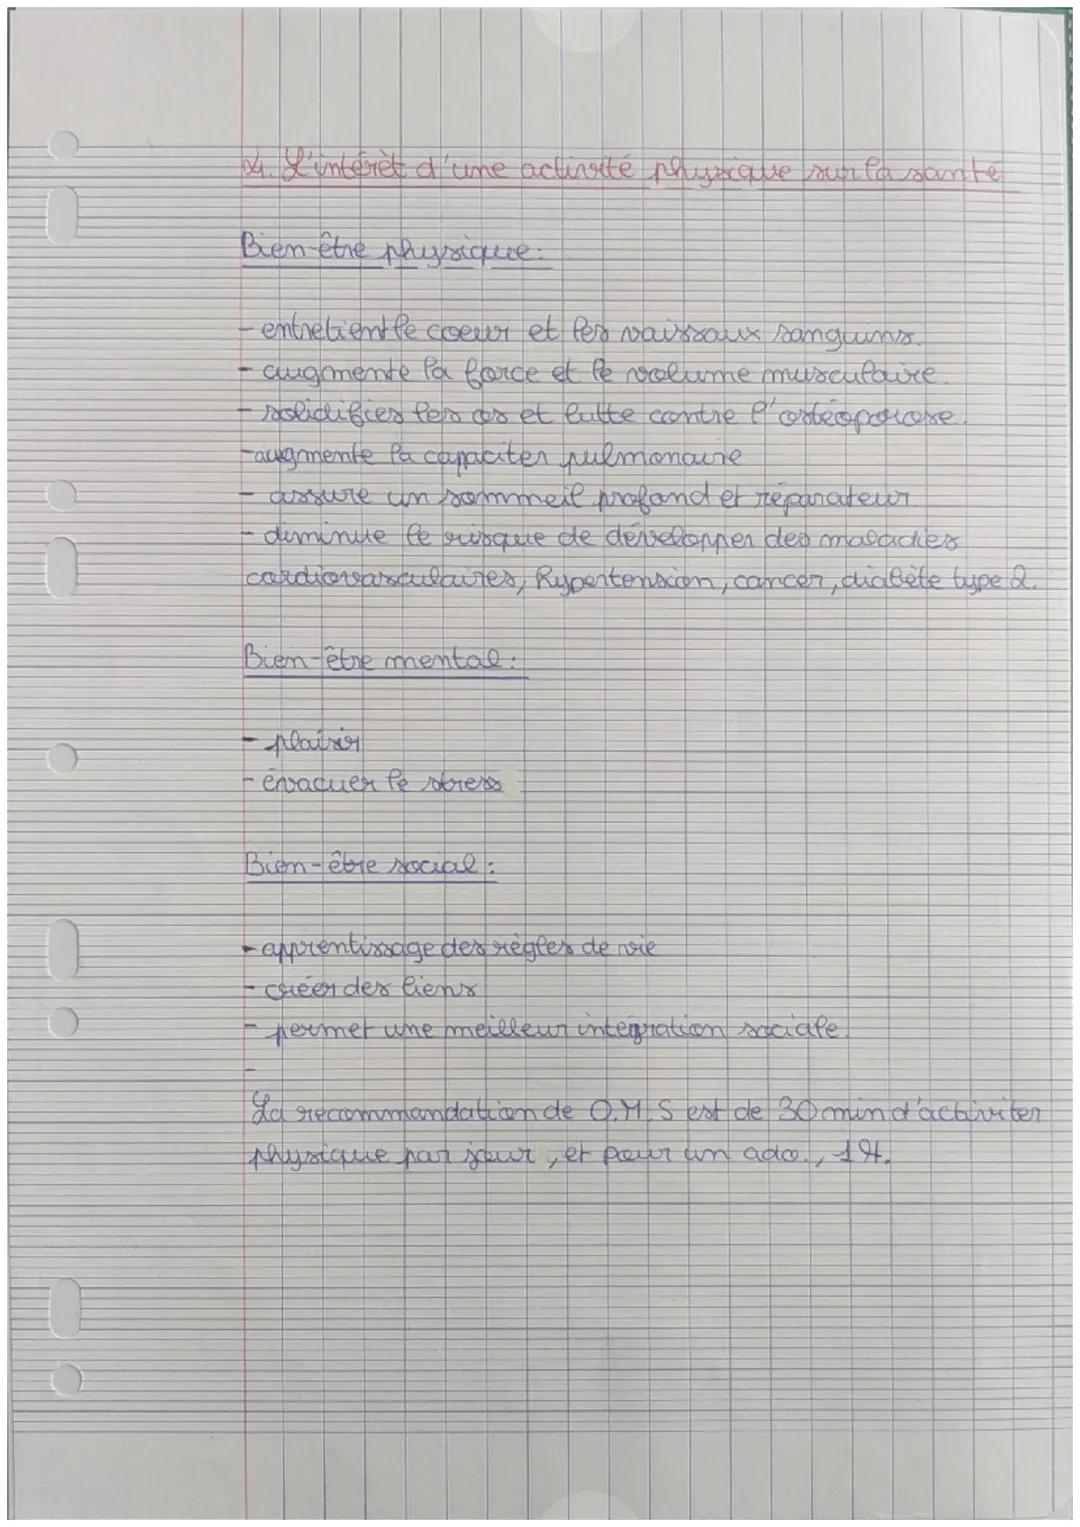 4. L'intérêt d'une activité physique sur la santé
Bien-être physique:
- entretient le coeur et les vaissaux sanguins.
- augmente la force et le volume musculaire.
- solidifies les os et lutte contre l'ostéoporose.
-augmente la capaciter pulmonaire
- assure un sommeil profond et réparateur
- diminue le risque de développer des maladies
cardiovasculaires, hypertension, cancer, diabète type 2.
Bien-être mental:
- plaisir
- évacuer le stress
Bien-être social:
- apprentissage des règles de vie
- créer des liens
- permet une meilleur intégration sociale.
-
La recommandation de O.M.S est de 30 min d'activiter
physique par jour, et pour un ado., 1H.